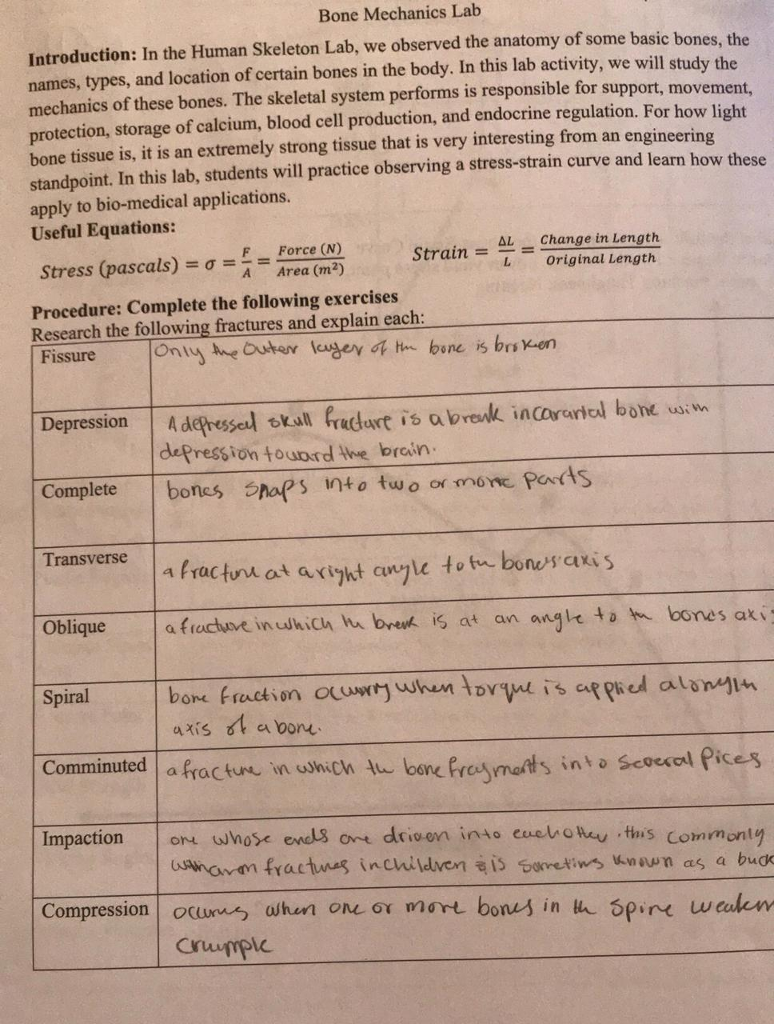 Bone Mechanics Lab
Introduction: In the Human Skeleton Lab, we observed the anatomy of some basic bones, the
names, types, and location of certain bones in the body. In this lab activity, we will study the
mechanics of these bones. The skeletal system performs is responsible for support, movement,
protection, storage of calcium, blood cell production, and endocrine regulation. For how light
bone tissue is, it is an extremely strong tissue that is very interesting from an engineering
standpoint. In this lab, students will practice observing a stress-strain curve and learn how these
apply to bio-medical applications.
Useful Equations:
Stress (pascals) = σ = F/A = Force (N)/Area (m²) Strain = ΔL/L = Change in Length/Original Length
Procedure: Complete the following exercises
Research the following fractures and explain each:
Fissure Only the Outer layer of the bone is broken
Depression A depressed skull fracture is a break in a bone with
depression toward the brain.
Complete bones snaps into two or more parts
Transverse a fracture at a right angle to the bone's axis
Oblique a fracture in which the break is at an angle to the bones axis
Spiral bone fraction when torque is applied along
axis of a bone.
Comminuted a fracture in which the bone fragments into several Pices
Impaction one whose ends are driven into each other. this commonly
fractures in children & is sometims known as a buck
Compression occurs when one or more bones in the spine weaken
crumple